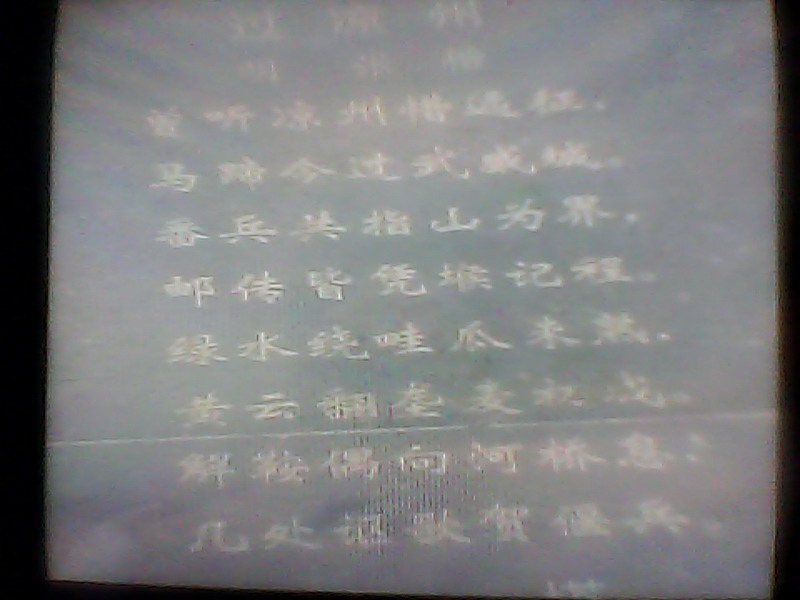 过凉州
曾听凉州惜远征，
马蹄今过武威城。
番兵共指山为界，
邮传皆凭堠记程。
绿水绕畦瓜未熟，
黄云翻垄麦初成。
解鞍偶向河桥息：
几处讴歌贺偃兵。